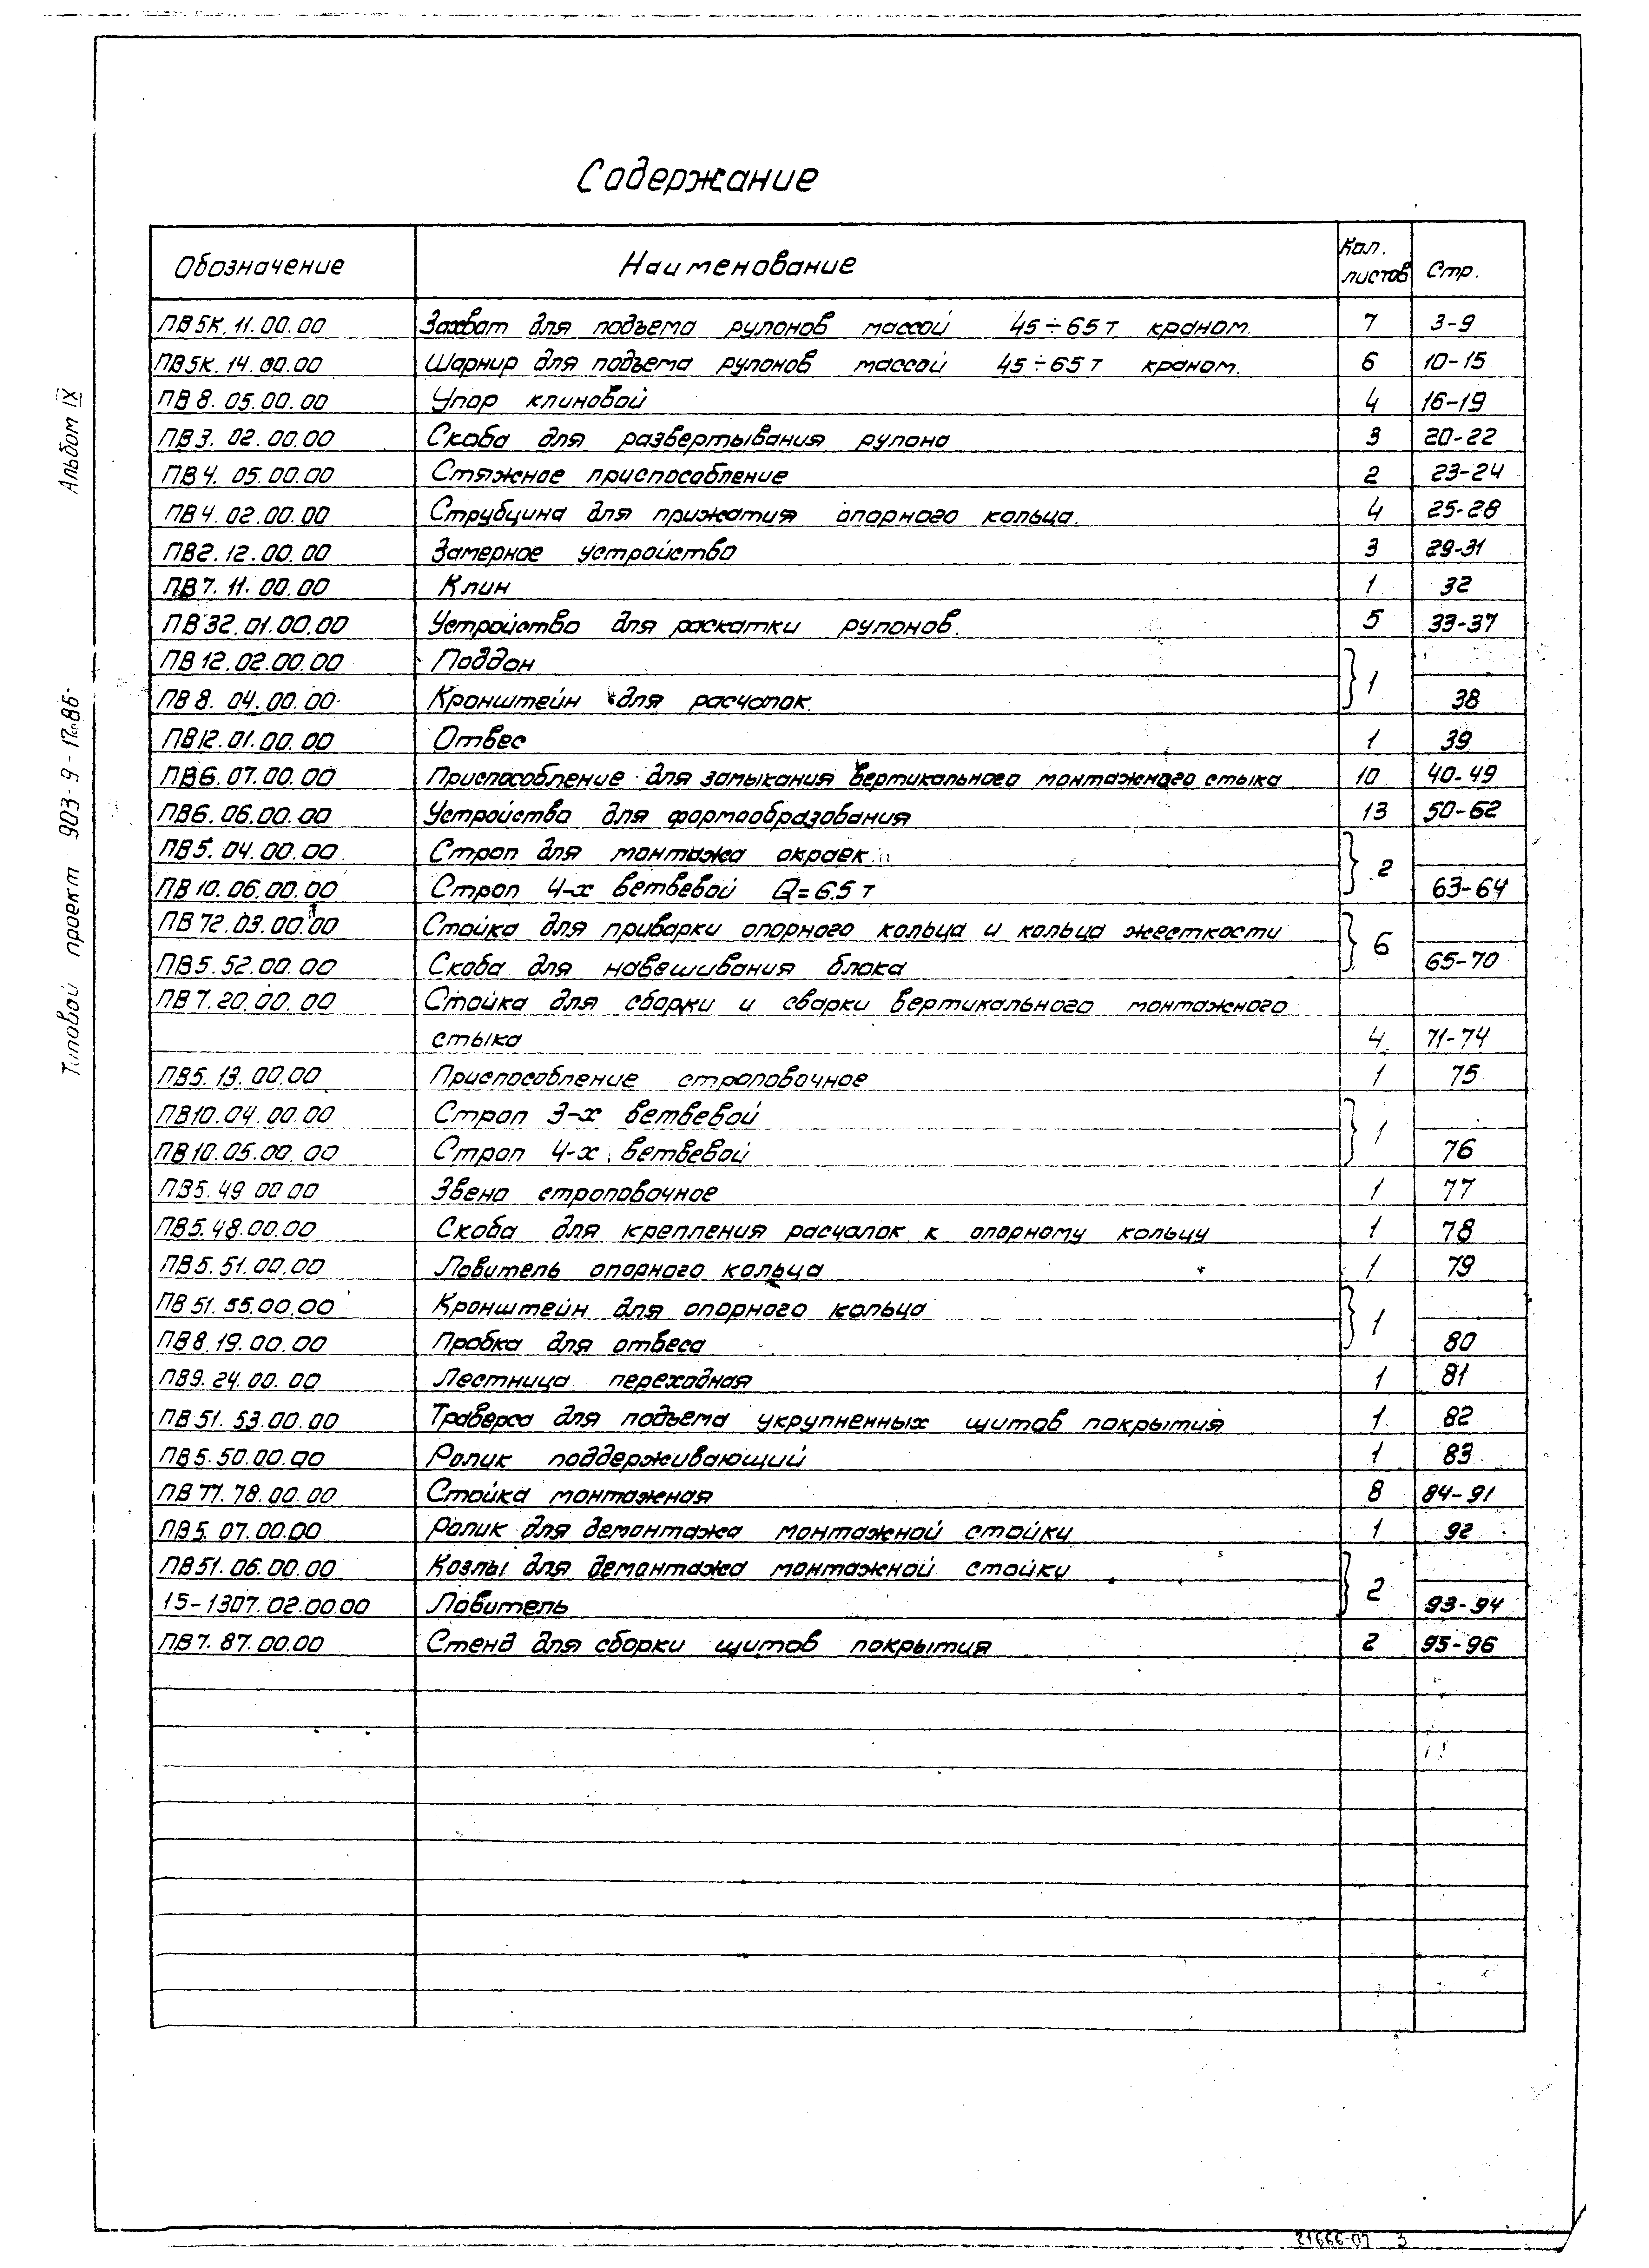 Содержание
Обозначение Наименование Кол. листов Стр.
ПВ5К.11.00.00 Захват для подъема рулонов массой 45÷65т краном. 7 3-9
ПВ5К.14.00.00 Шарнир для подъема рулонов массой 45÷65т краном. 6 10-15
ПВ8.05.00.00 Упор клиновой 4 16-19
ПВ3.02.00.00 Скоба для развертывания рулона 3 20-22
ПВ4.05.00.00 Стяжное приспособление 2 23-24
ПВ4.02.00.00 Струбцина для прижатия опорного кольца. 4 25-28
ПВ2.12.00.00 Замерное устройство 3 29-31
ПВ7.11.00.00 Клин 1 32
ПВ32.01.00.00 Устройство для раскатки рулонов. 5 33-37
ПВ12.02.00.00 Поддон
ПВ8.04.00.00 Кронштейн для расчалок. 1 38
ПВ12.01.00.00 Отвес 1 39
ПВ6.07.00.00 Приспособление для замыкания вертикального монтажного стыка 10 40-49
ПВ6.06.00.00 Устройство для формообразования 13 50-62
ПВ5.04.00.00 Строп для монтажа окраек
ПВ10.06.00.00 Строп 4-х ветвевой Q=6.5т 2 63-64
ПВ72.03.00.00 Стойка для приварки опорного кольца и кольца жесткости
ПВ5.52.00.00 Скоба для навешивания блока 6 65-70
ПВ7.20.00.00 Стойка для сборки и сварки вертикального монтажного
стыка 4 71-74
ПВ5.13.00.00 Приспособление строповочное 1 75
ПВ10.04.00.00 Строп 3-х ветвевой
ПВ10.05.00.00 Строп 4-х ветвевой 1 76
ПВ5.49.00.00 Звено строповочное 1 77
ПВ5.48.00.00 Скоба для крепления расчалок к опорному кольцу 1 78
ПВ5.51.00.00 Ловитель опорного кольца 1 79
ПВ51.55.00.00 Кронштейн для опорного кольца
ПВ8.19.00.00 Пробка для отвеса 1 80
ПВ9.24.00.00 Лестница переходная 1 81
ПВ51.53.00.00 Траверса для подъема укрупненных щитов покрытия 1 82
ПВ5.50.00.00 Ролик поддерживающий 1 83
ПВ77.78.00.00 Стойка монтажная 8 84-91
ПВ5.07.00.00 Ролик для демонтажа монтажной стойки 1 92
ПВ51.06.00.00 Козлы для демонтажа монтажной стойки
15-1307.02.00.00 Ловитель 2 93-94
ПВ7.87.00.00 Стенд для сборки щитов покрытия 2 95-96
Альбом IX
Типовой проект
21666-07 3